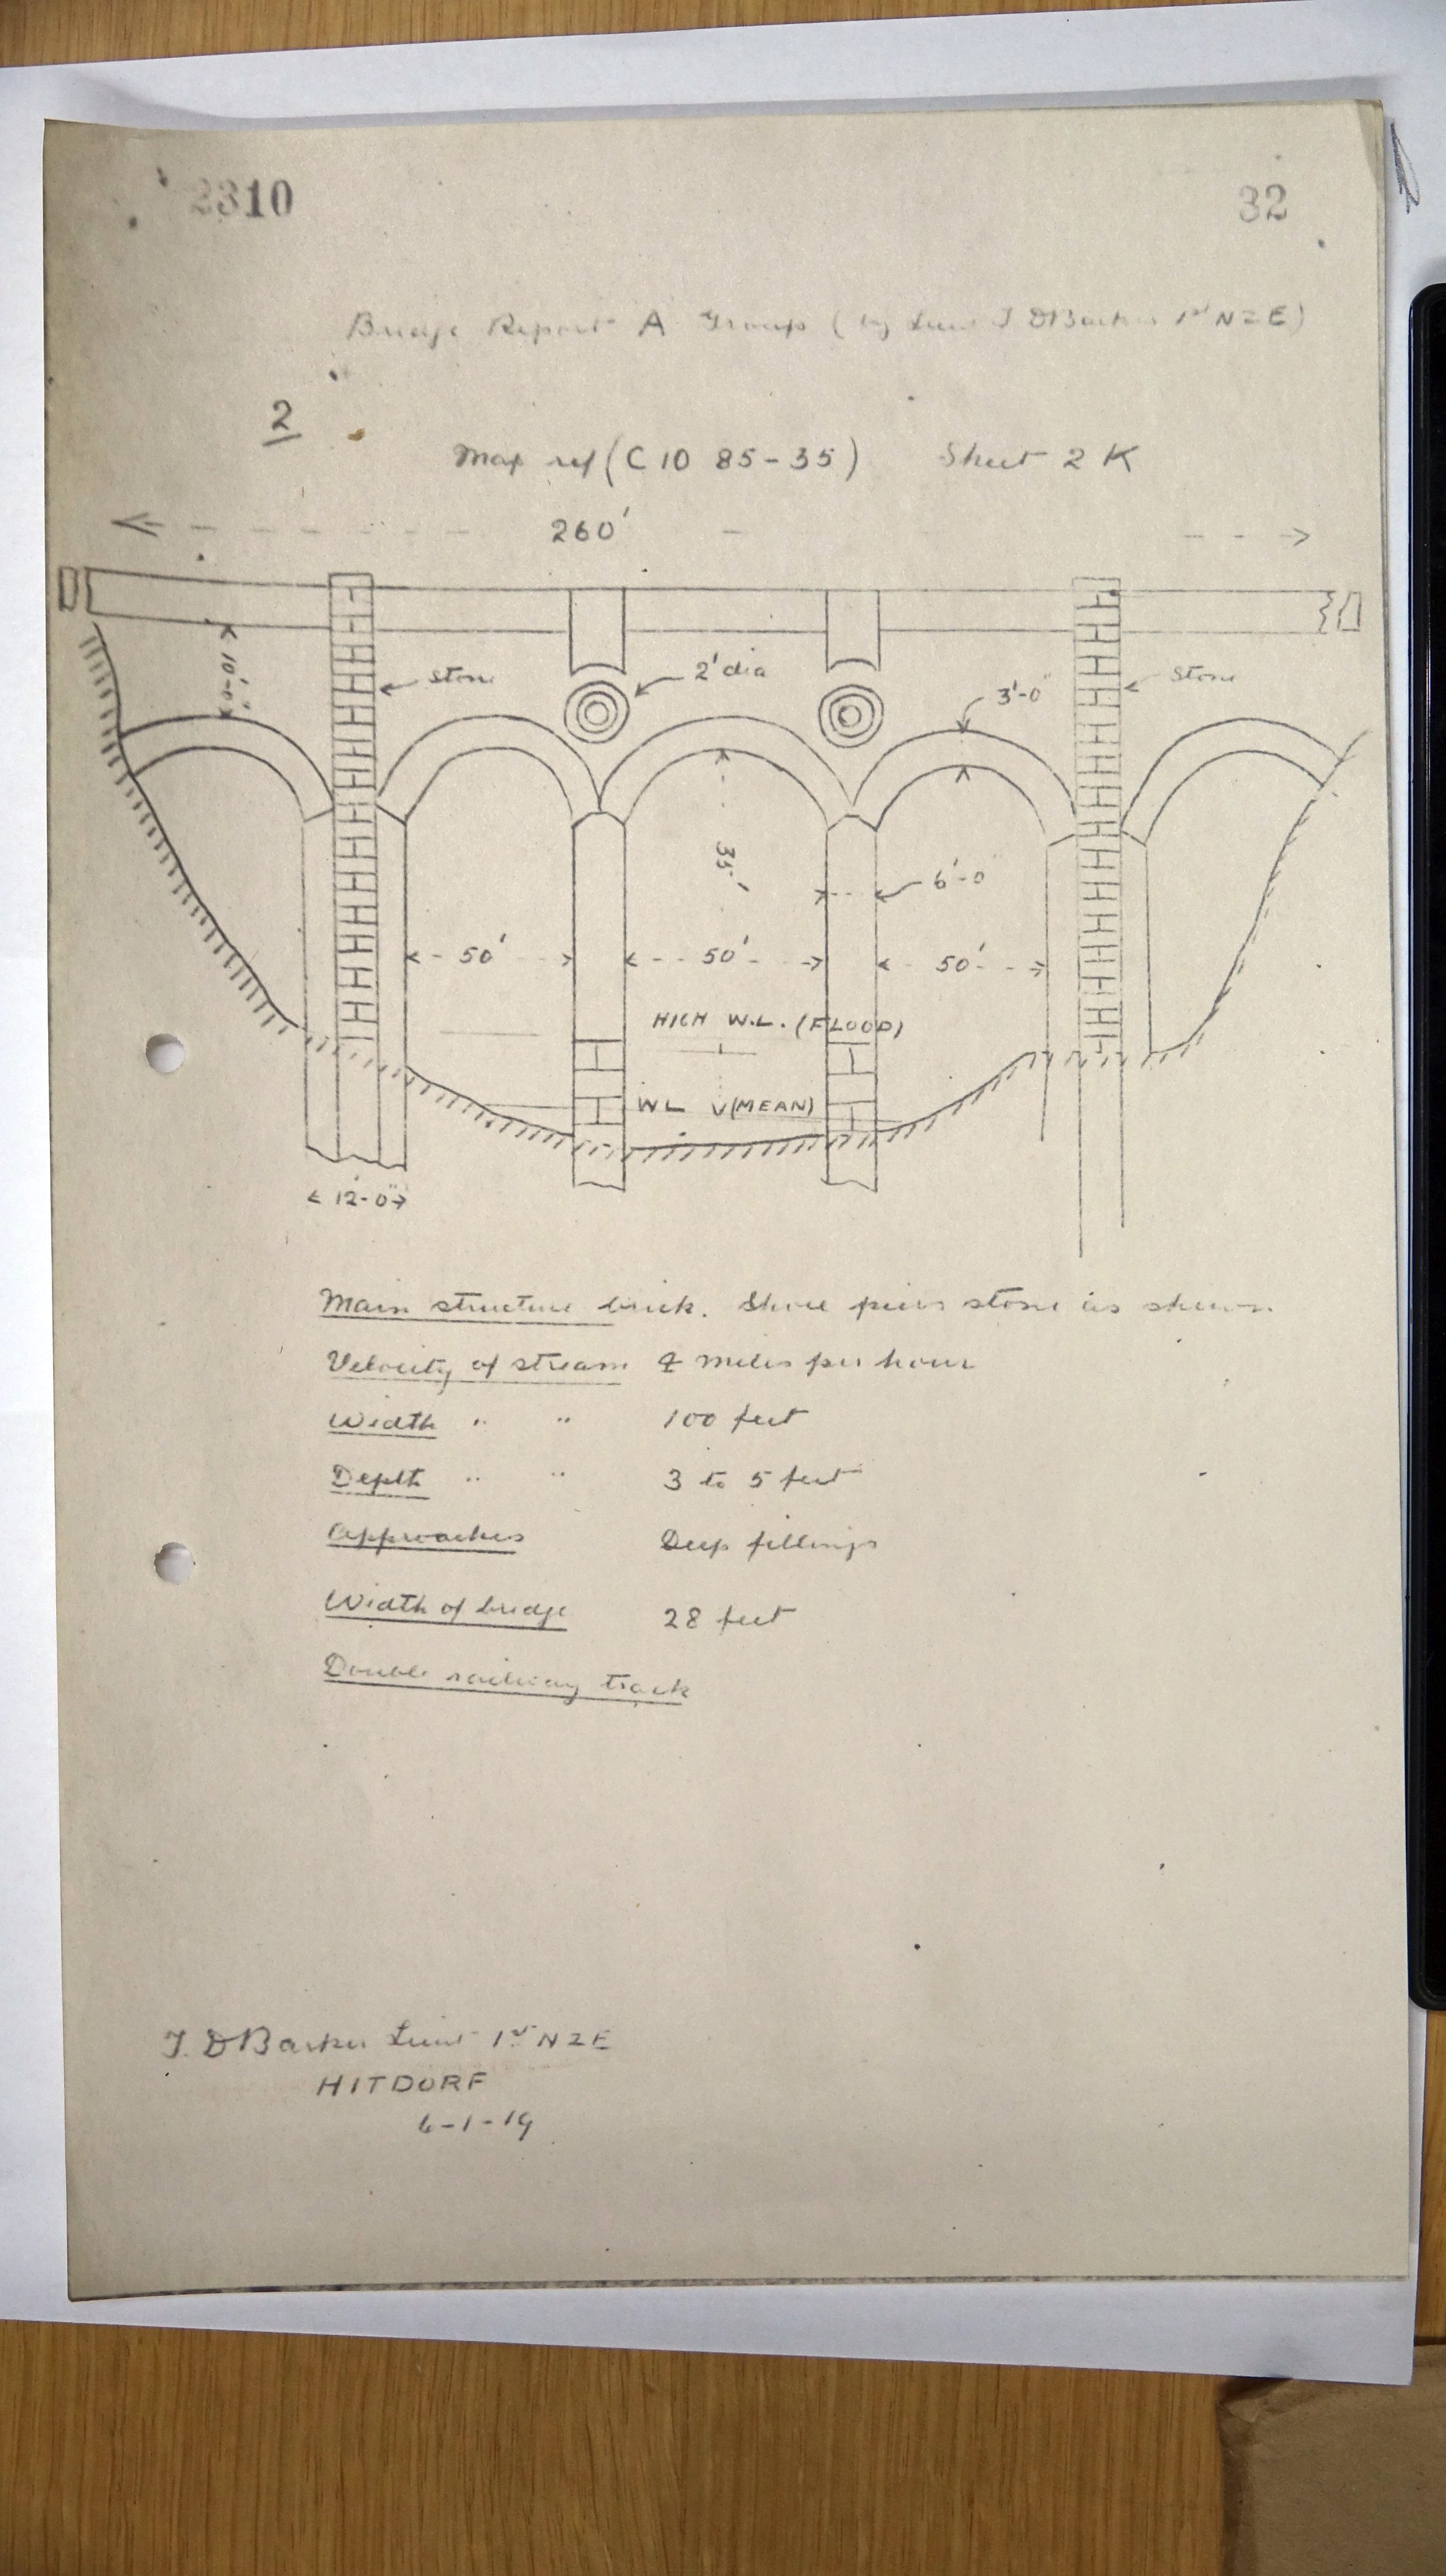 2310
32
Bridge Report A Group (by Lieut T D Barker 1st N Z E)
2
Map ref (C 10 85-35) Sheet 2 K
260'
10'-0"
stone
2' dia
3'-0"
stone
35'
6'-0
50'
50'
50'
HIGH W.L. (FLOOD)
WL (MEAN)
12'-0"
Main structure brick. Shore piers stone as shewn.
Velocity of stream miles per hour
Width " " 100 feet
Depth " " 3 to 5 feet
Approaches Deep fillings
Width of bridge 28 feet
Double railway track
T. D Barker Lieut 1st N Z E
HITDORF
6-1-19